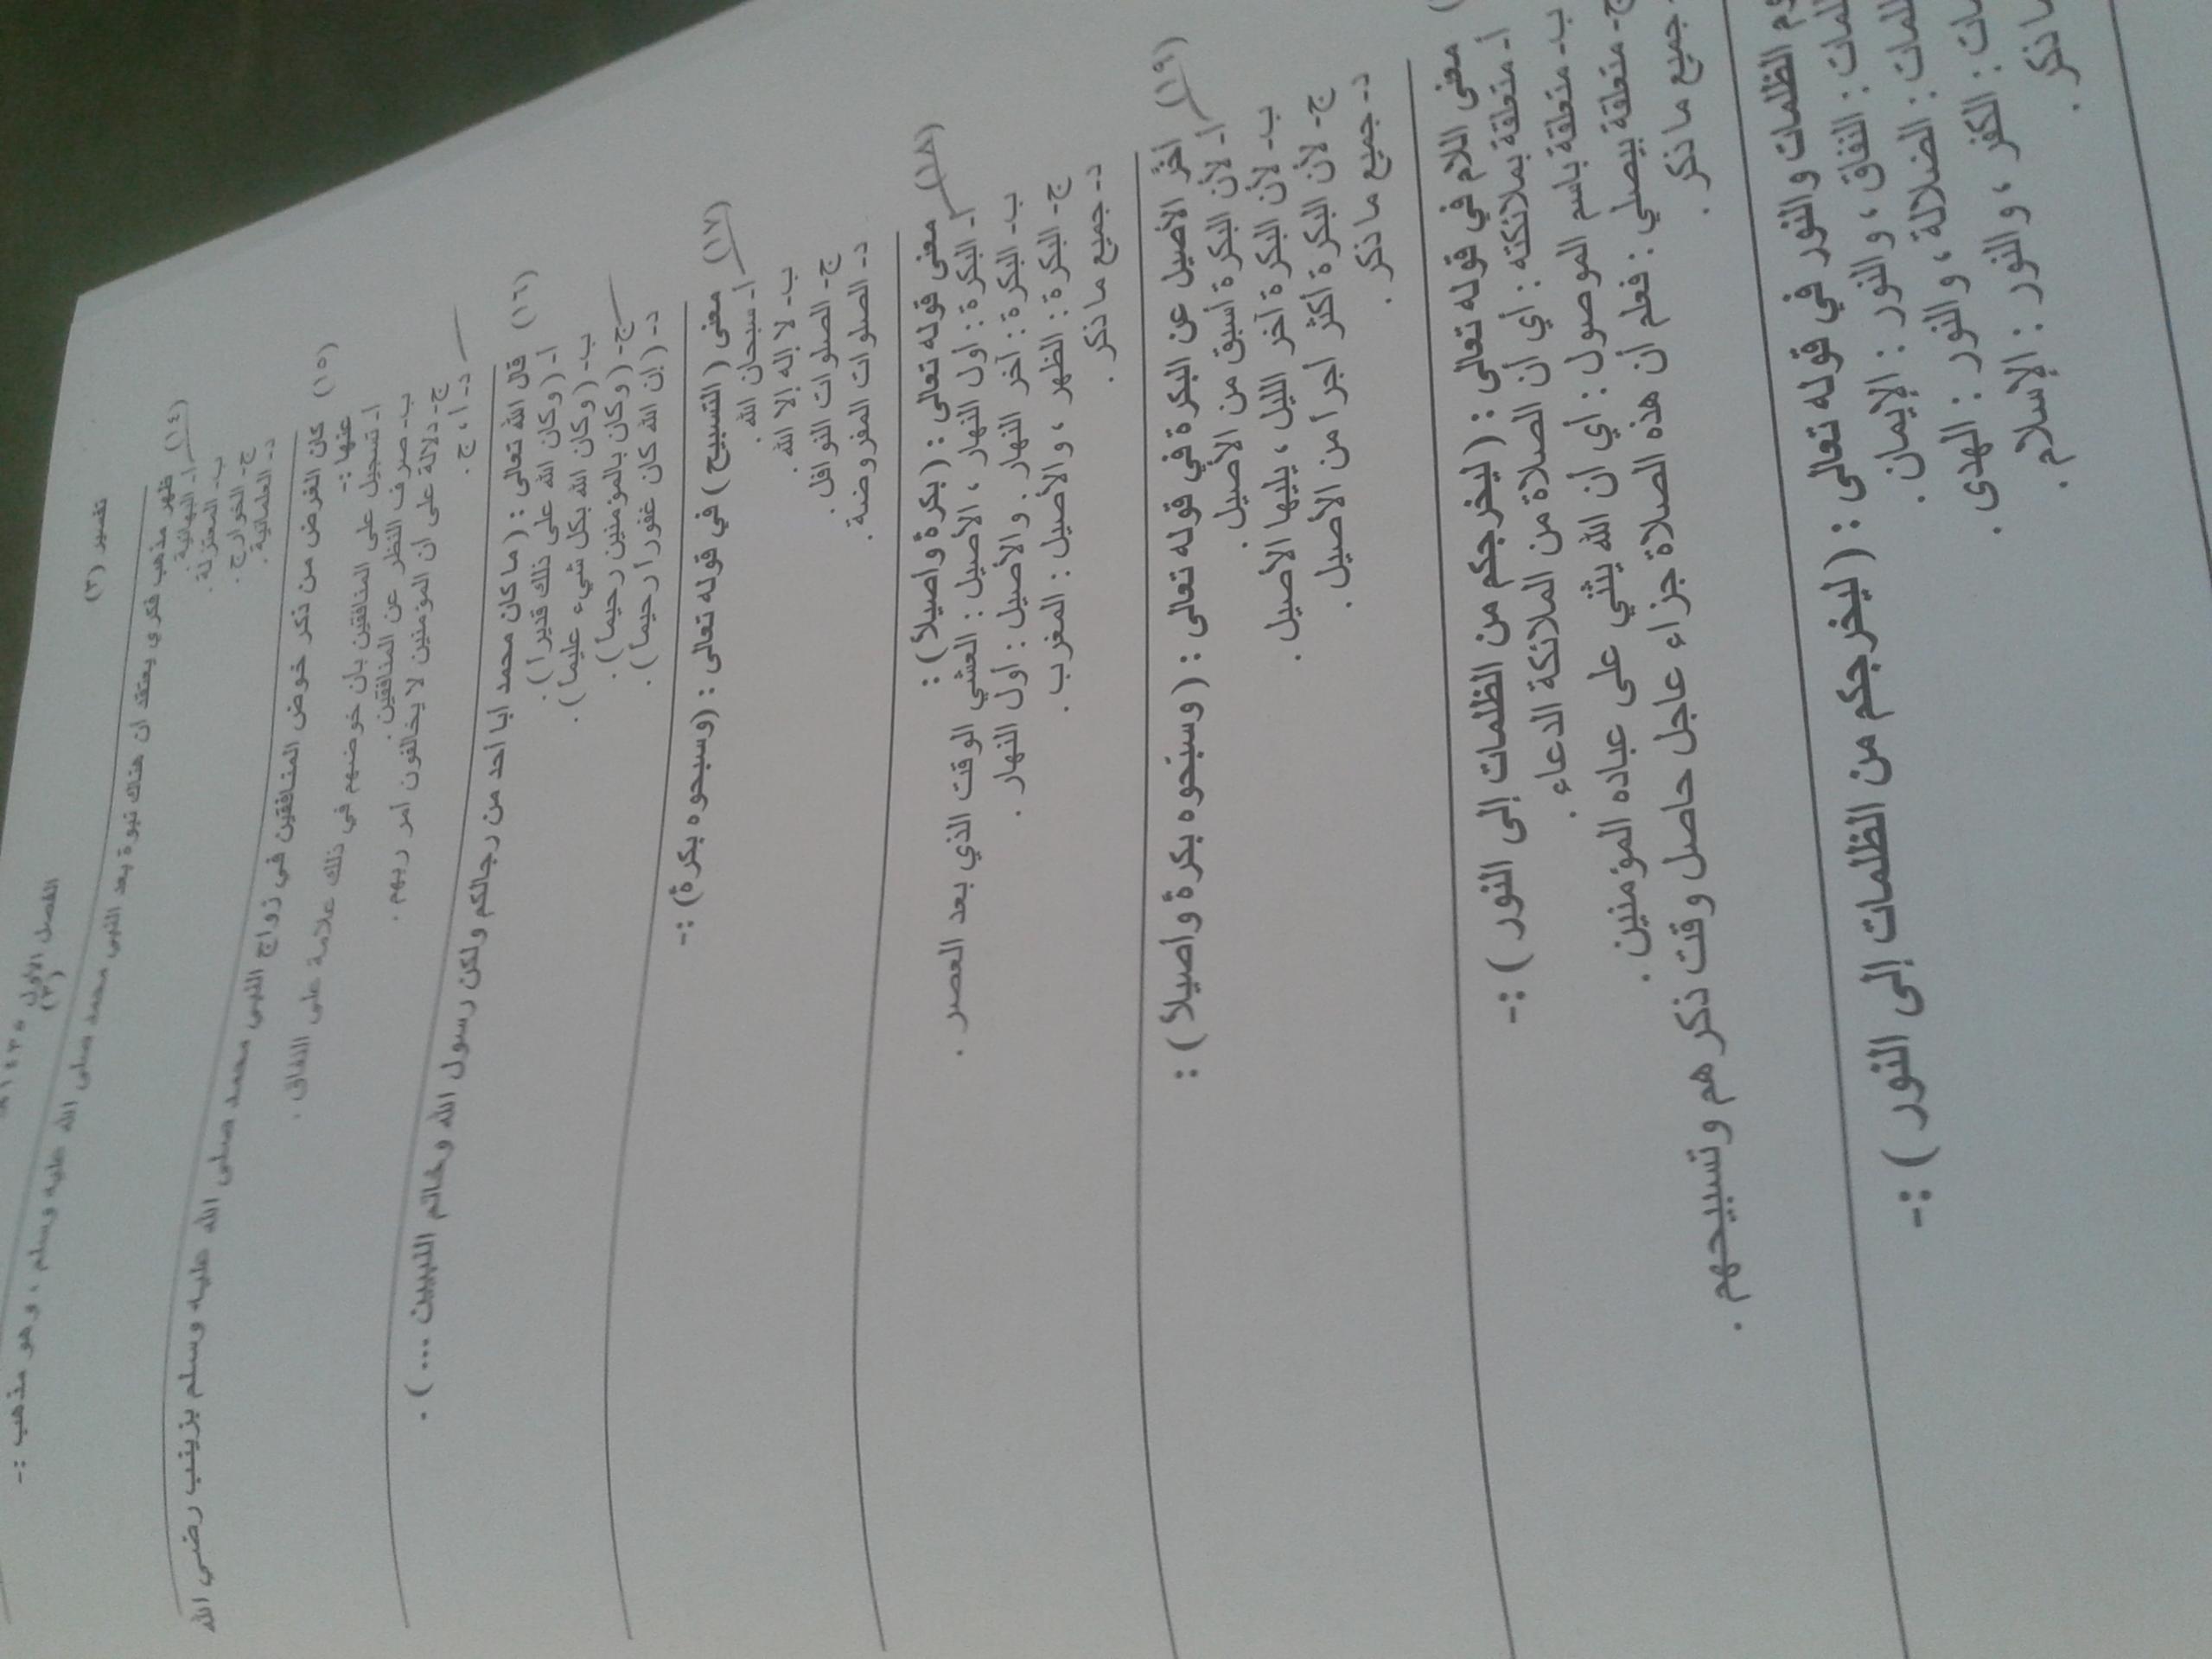 تفسير (٣)
الفصل الأول
(٣)
(١٤) ظهر مذهب فكري يعتقد ان هناك نبوة بعد النبي محمد صلى الله عليه وسلم ، وهو مذهب :-
أ- البهائية.
ب- المعتزلة .
ج- الخوارج .
د- العلمانية.
(١٥) كان الغرض من ذكر خوض المنافقين في زواج النبي محمد صلى الله عليه وسلم بزينب رضي الله
عنها :-
أ- تسجيل على المنافقين بأن خوضهم في ذلك علامة على النفاق .
ب- صرف النظر عن المنافقين.
ج- دلالة على ان المؤمنين لا يخالفون أمر ربهم .
د- أ ، ج .
(١٦) قال الله تعالى : ( ما كان محمد ابا احد من رجالكم ولكن رسول الله وخاتم النبيين ... ) .
أ- (وكان الله على ذلك قديراً ) .
ب- (وكان الله بكل شيء عليماً ) .
ج- (وكان بالمؤمنين رحيماً ) .
د- (إن الله كان غفوراً رحيماً ) .
(١٧) معنى ( التسبيح ) في قوله تعالى : (وسبحوه بكرة) :-
أ- سبحان الله .
ب- لا إله إلا الله .
ج- الصلوات النوافل .
د- الصلوات المفروضة .
(١٨) معنى قوله تعالى : ( بكرة وأصيلاً ) :
أ- البكرة : أول النهار ، الأصيل : العشي الوقت الذي بعد العصر .
ب- البكرة : آخر النهار . والأصيل : أول النهار .
ج- البكرة : الظهر ، والأصيل : المغرب .
د- جميع ما ذكر .
(١٩) أخر الأصيل عن البكرة في قوله تعالى : ( وسبحوه بكرة وأصيلاً ) :
أ- لأن البكرة أسبق من الأصيل .
ب- لأن البكرة آخر الليل ، يليها الأصيل .
ج- لأن البكرة أكثر أجراً من الأصيل .
د- جميع ما ذكر .
معنى اللام في قوله تعالى : ( ليخرجكم من الظلمات إلى النور ) :-
أ- متعلقة بملائكته : أي أن الصلاة من الملائكة الدعاء .
ب- متعلقة باسم الموصول : أي أن الله يثني على عباده المؤمنين .
ج- متعلقة بيصلي : فعلم أن هذه الصلاة جزاء عاجل حاصل وقت ذكرهم وتسبيحهم .
جميع ما ذكر .
الظلمات والنور في قوله تعالى : ( ليخرجكم من الظلمات إلى النور ) :-
النفاق ، والنور : الإيمان .
الضلالة ، والنور : الهدى .
الكفر ، والنور : الإسلام .
ما ذكر .